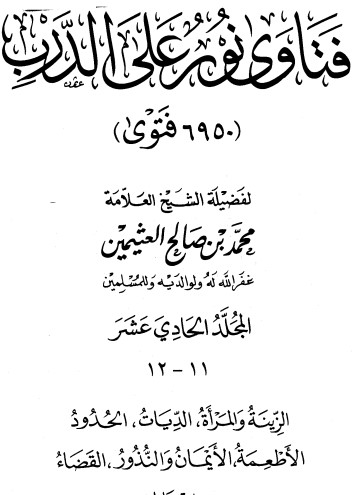 فَتَاوَى نُورٌ عَلَى الدَّرْبِ
(٦٩٥٠ فَتْوَى)
لفَضيلَة الشَّيخ العَلَّامَة
محمَّد بن صَالح العثيمين
غفَر الله لَهُ ولوَالديْه وللمُسْلِمين
المُجلَّدُ الحَادِي عَشَرَ
١١ - ١٢
الزِّينَةُ وَالمَرْأَةُ، الدِّيَاتُ، الحُدُودُ
الأَطْعِمَةُ، الأَيْمَانُ وَالنُّذُورُ، القَضَاءُ